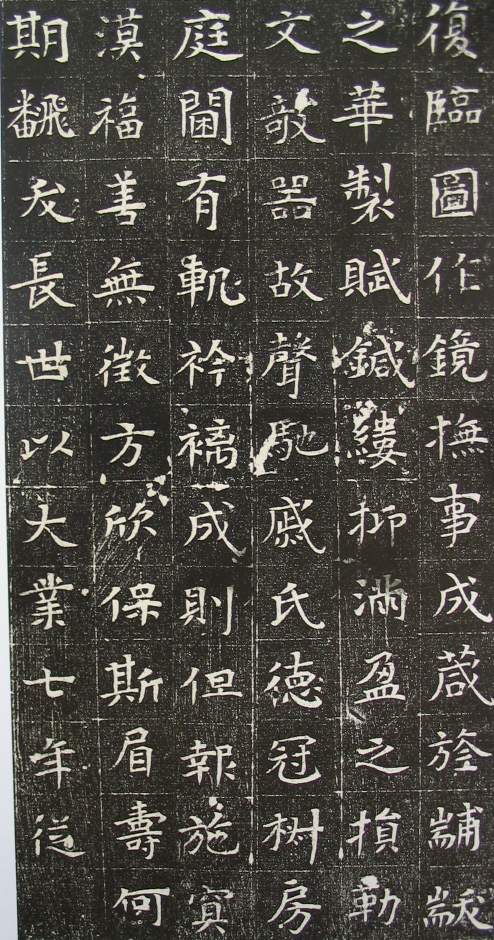 復臨圖作鏡撫事成葴於黼黻
之華製賦鍼縷抑滿盈之損勒
文敧器故聲馳戚氏德冠椒房
庭閫有軌衿褵成則但報施冥
漠福善無徵方欣保斯眉壽何
期飜夭長世以大業七年從